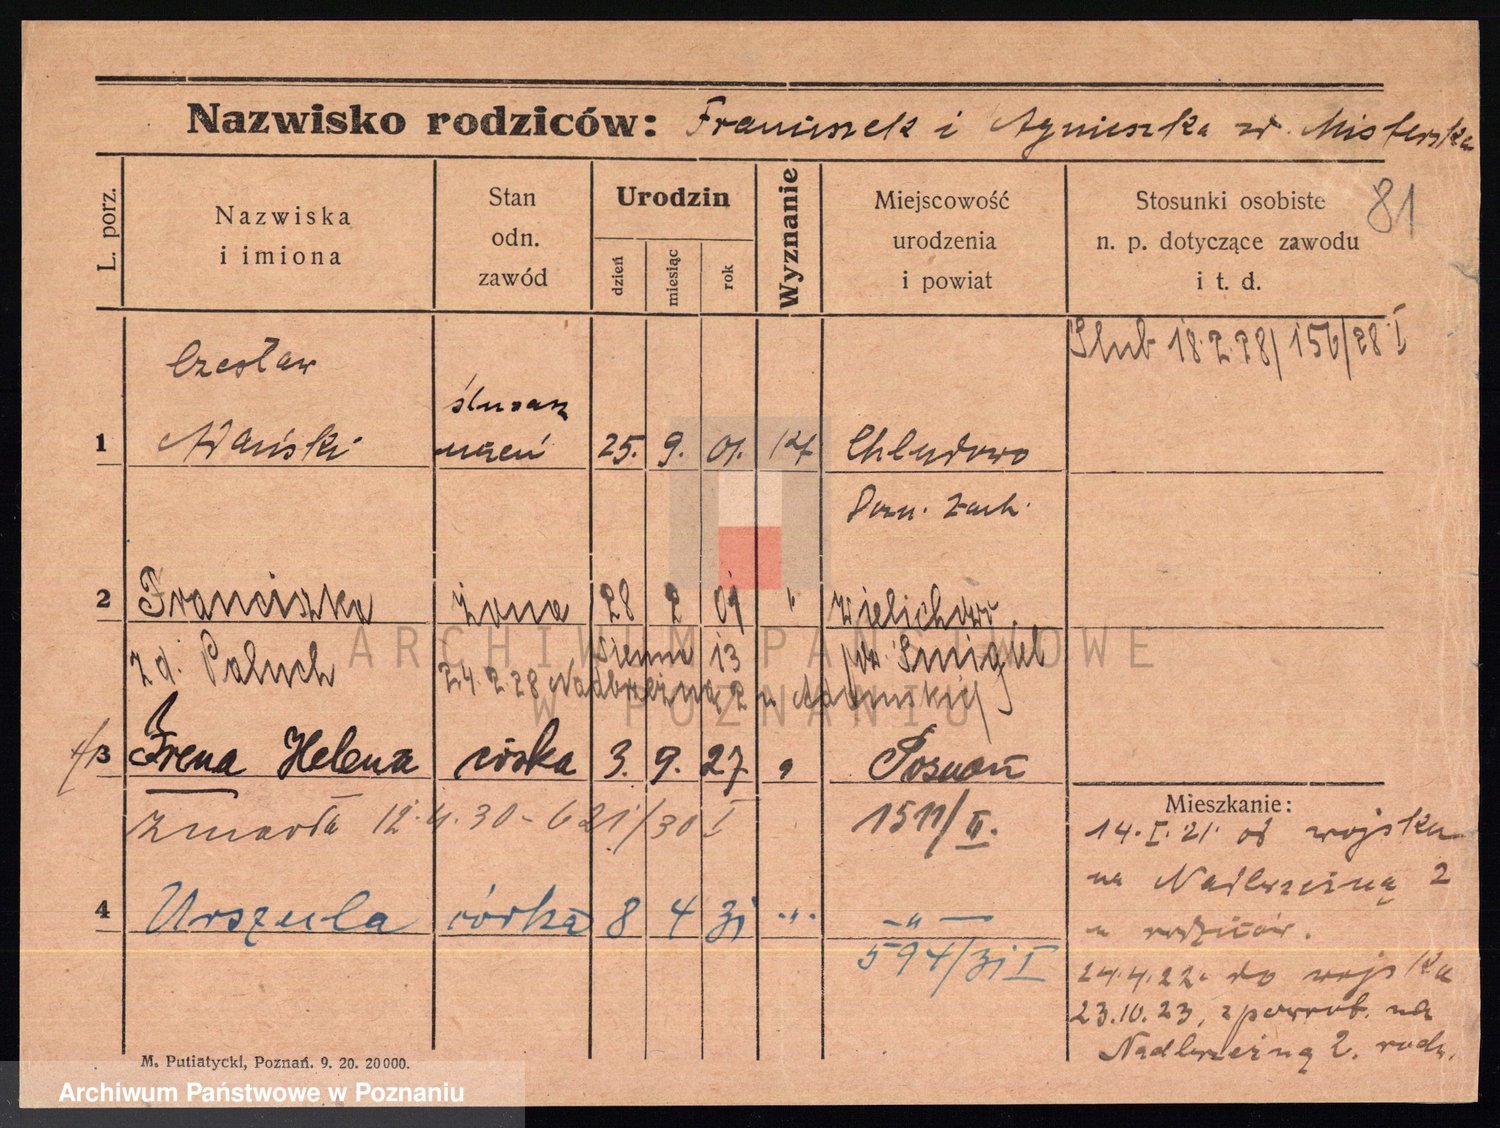 Nazwisko rodziców: Franciszek i Agnieszka
L. porz.
Nazwiska
i imiona
Stan
odn.
zawód
Urodzin
dzień
miesiąc
rok
Wyznanie
Miejscowość
urodzenia
i powiat
Stosunki osobiste
n. p. dotyczące zawodu
i t. d.
81
Ślub 18.2.28/156/28 I
Czesław
1 25. 9. 01. Chludowo
Pozn. Zach.
2 Franciszka żona 28 2 " Wielichowo
zd. Paluch 13 pw. Śmigiel
24.2.28 Nadbrzeżną 2
3 Irena Helena córka 3. 9. 27 " Poznań
zmarła 12.4.30 - 621/30 I 1511/II.
4 Urszula córka 8 4 31 " — " —
594/31 I
Mieszkanie:
14.I.21. od wojska
na Nadbrzeżną 2
u rodziców.
24.4.22. do wojska
23.10.23, z powrot. na
Nadbrzeżną 2. rodz.
M. Putiatycki, Poznań. 9. 20. 20000.
ARCHIWUM PAŃSTWOWE
W POZNANIU
Archiwum Państwowe w Poznaniu